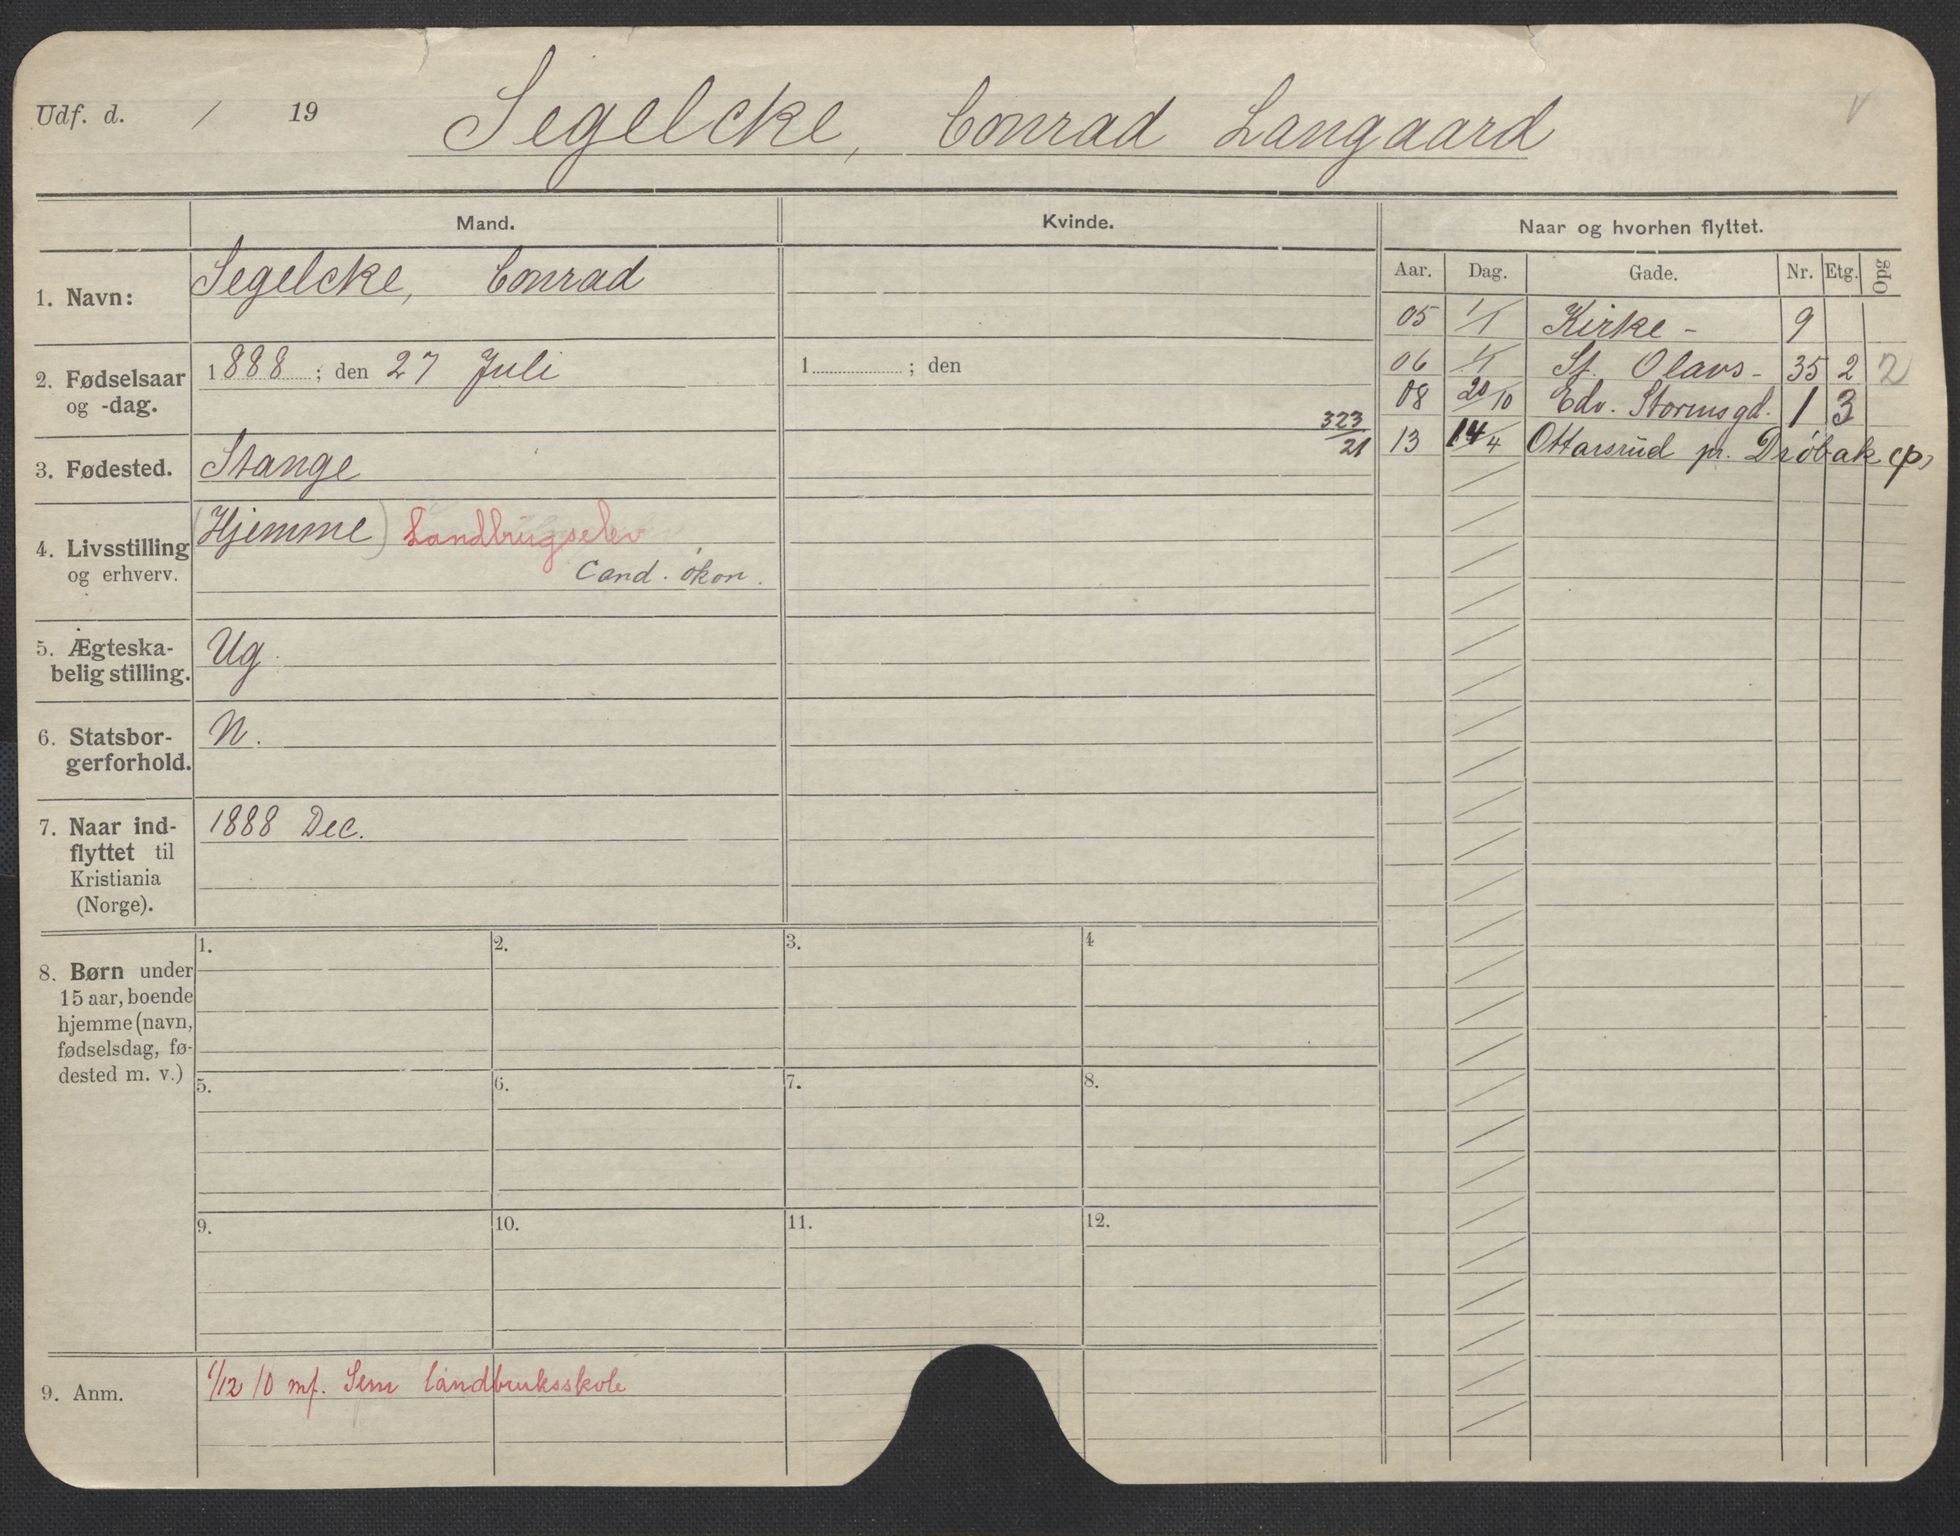 Udf. d. / 19 Segelcke, Conrad Langaard V
Mand. Kvinde. Naar og hvorhen flyttet.
Aar. Dag. Gade. Nr. Etg. Opg
1. Navn: Segelcke, Conrad
05 1/1 Kirke - 9
2. Fødselsaar og -dag. 1888 ; den 27 Juli 1 ; den
06 1/1 St. Olavs - 35 2 2
08 20/10 Edv. Stormsgd. 1 3
323/21
13 14/4 Ottarsrud pr. Drøbak cp,
3. Fødested. Stange
4. Livsstilling og erhverv. (Hjemme) Landbrugselev
Cand. økon.
5. Ægteska-
belig stilling. Ug.
6. Statsbor-
gerforhold. N.
7. Naar ind-
flyttet til
Kristiania
(Norge). 1888 Dec.
8. Børn under
15 aar, boende
hjemme (navn,
fødselsdag, fø-
dested m. v.)
1. 2. 3. 4
5. 6. 7. 8.
9. 10. 11. 12.
9. Anm. 1/12 10 mf. Sem landbruksskole